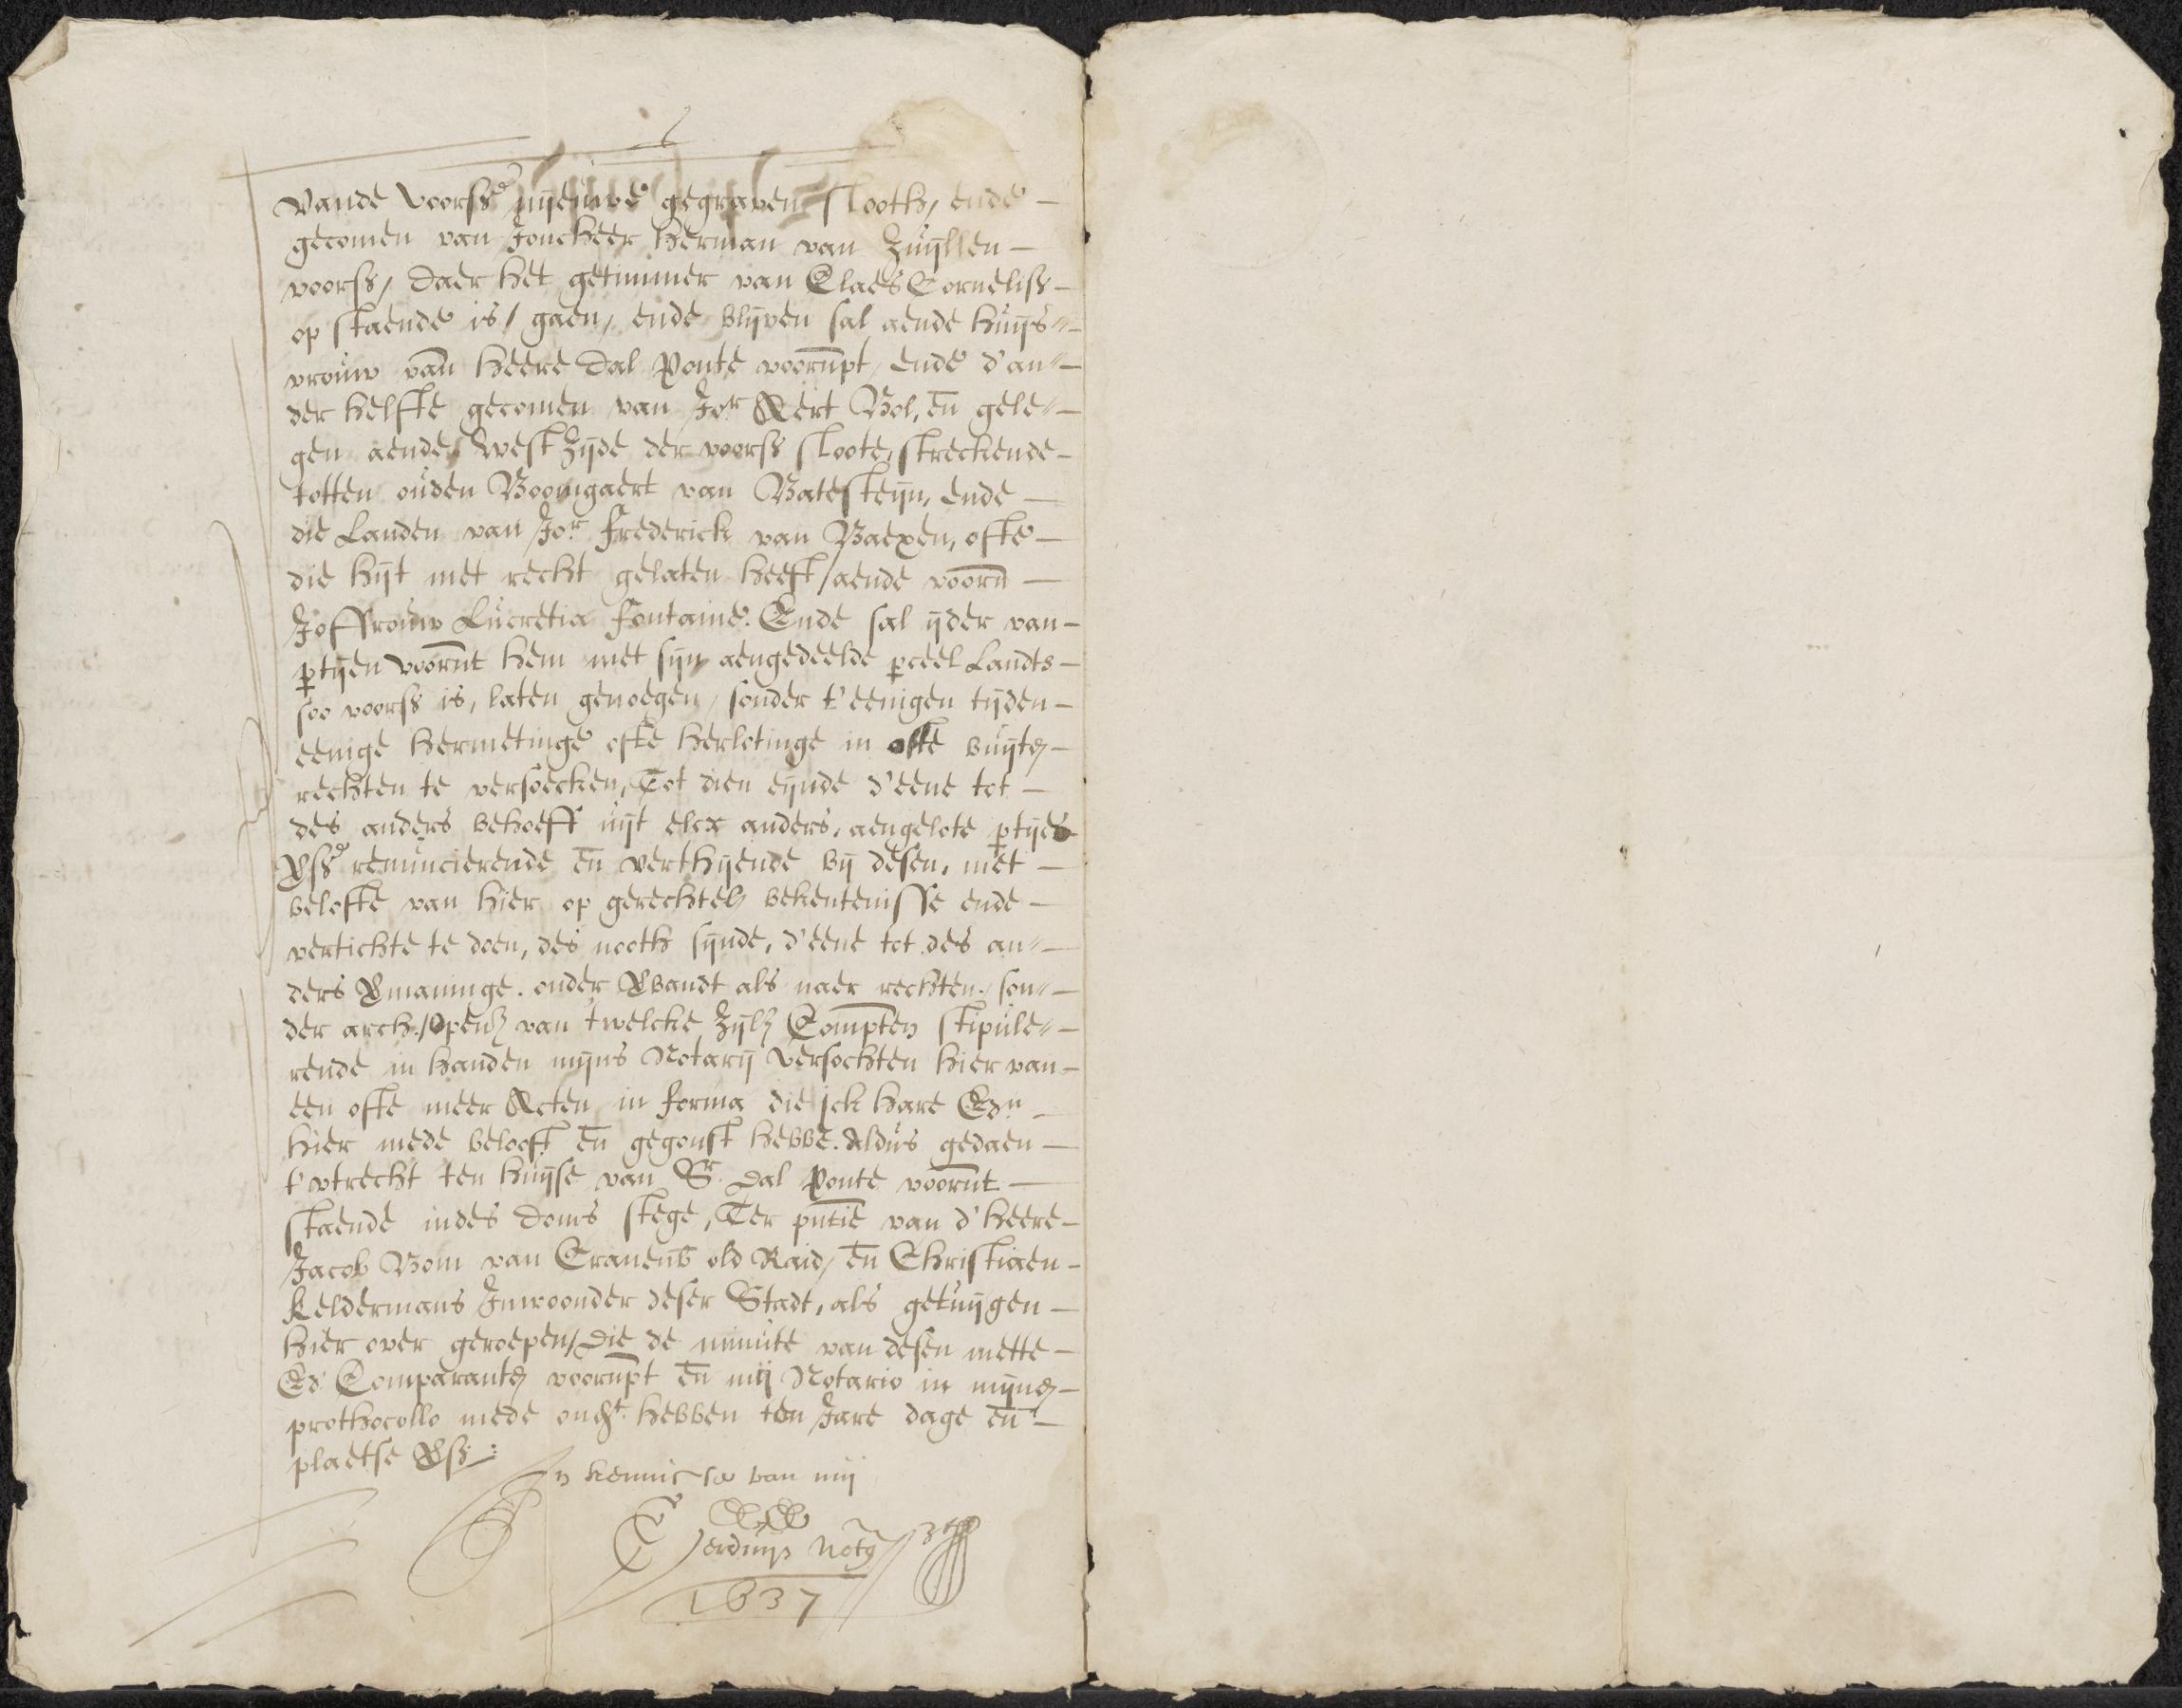 vande voorss nijeuwe gegraven slooth, ende
gecomen van Jonckheer Herman van Zuijllen
voorss, daer het getimmer van Claes Corneliss
op staende is, gaen, ende blijven sal aende huijs-
vrouw van Heere dal Ponte voornpt, ende d'an-
der helfte gecomen van Jor Aert Bol, en gele-
gen aende westzijde der voorss sloote, streckende
totten ouden Boomgaert van Batesteijn, ende
die Landen van Jor Frederick van Baexen, ofte
die hijt met recht gelaten heeft, aende voorn
Joffrouw Lucretia Fontaine. Ende sal ijder van
ptijen voornt hem met sijn aengedeelde pceel Landts
soo voorss is, laten genoegen, sonder t'eenigen tijden
eenige hermetinge ofte herlotinge in ofte buijten
rechten te versoecken, Tot dien eijnde d'eene tot
des anders behoeff uijt elcx anders, aengelote ptijes
vss renuncierende en verthijende bij desen, met
belofte van hier op gerechtel bekentenisse ende
vertichte te doen, des nooth sijnde, d'eene tot des an-
ders vmaninge. onder vbandt als naer rechten. son-
der arch. van twelcke Zijl Compten stipule-
rende in handen mijns Notarij versochten hier van
een ofte meer Acten in forma die ick hare Edn
hier mede belooft en gegonst hebbe. Aldus gedaen
t'vtrecht ten huijse van Sr. dal Ponte voornt
staende indes Doms stege, Ter pntie van d'heere
Jacob Bom van Cranenb old Raid, en Christiaen
Keldermans Inwoonder deser Stadt, als getuijgen
hier over geroepen, die de minute van desen mette
Ed Comparanten voornpt en mij Notario in mijnen
prothocollo mede ondt. hebben ten Jare dage en
plaetse vss.
In kennisse van mij
G Verduijn NotS
1637